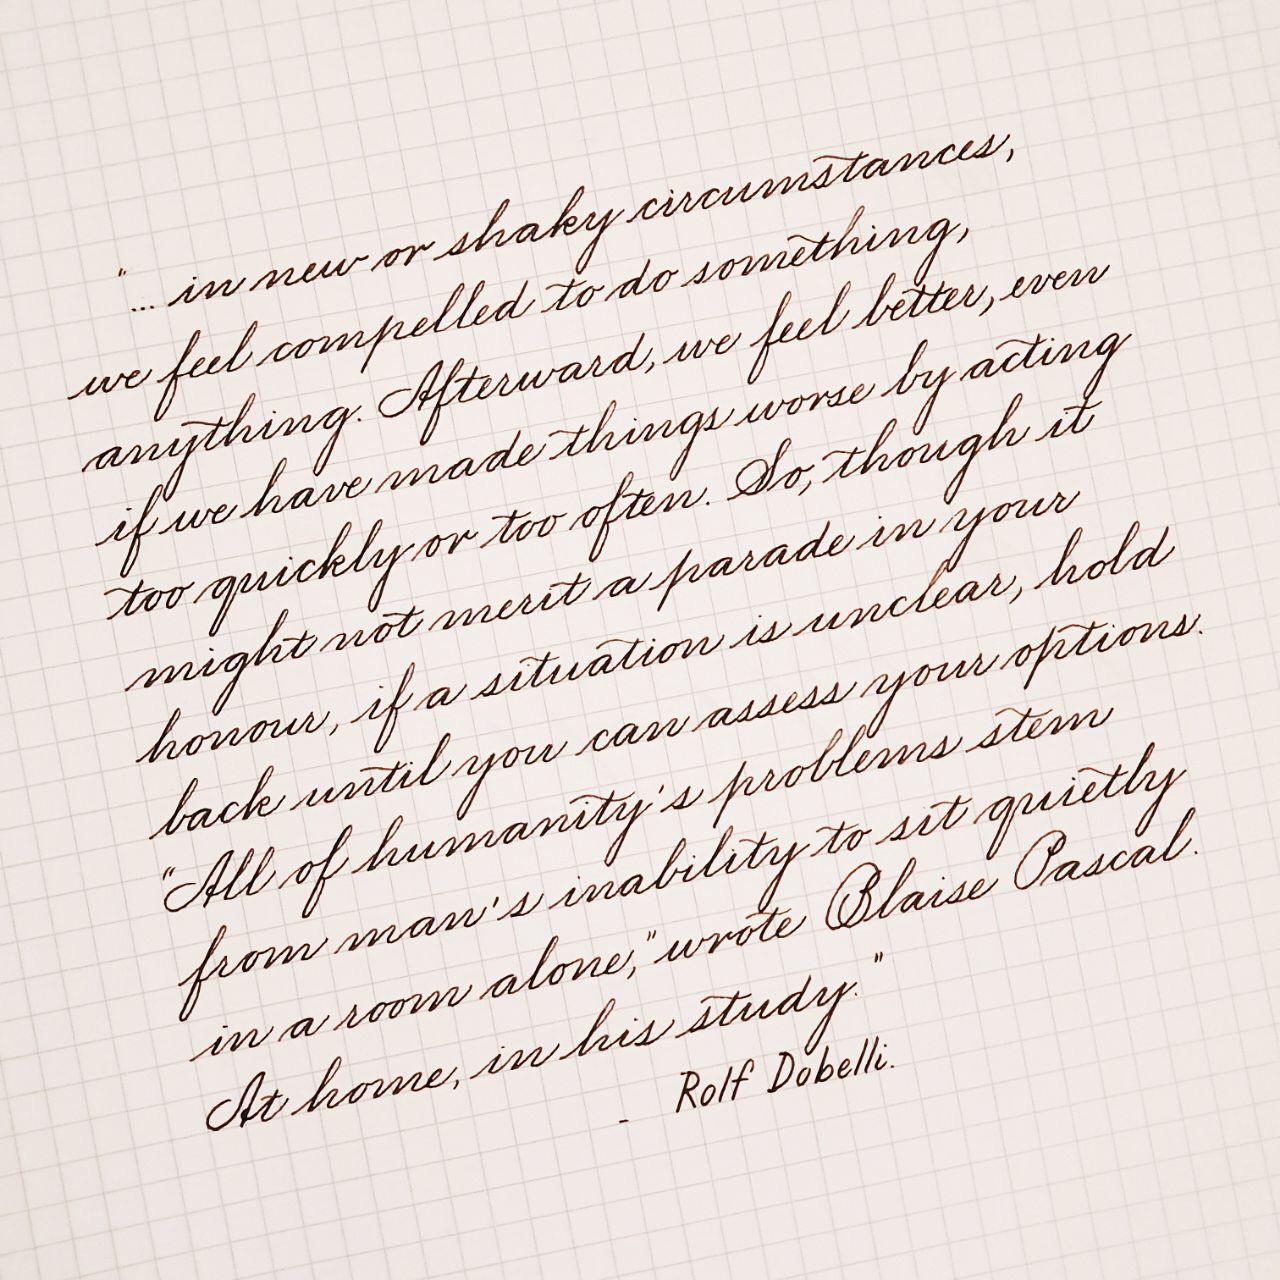 "... in new or shaky circumstances,
we feel compelled to do something,
anything. Afterward, we feel better, even
if we have made things worse by acting
too quickly or too often. So, though it
might not merit a parade in your
honour, if a situation is unclear, hold
back until you can assess your options.
"All of humanity's problems stem
from man's inability to sit quietly
in a room alone," wrote Blaise Pascal.
At home, in his study."
- Rolf Dobelli.